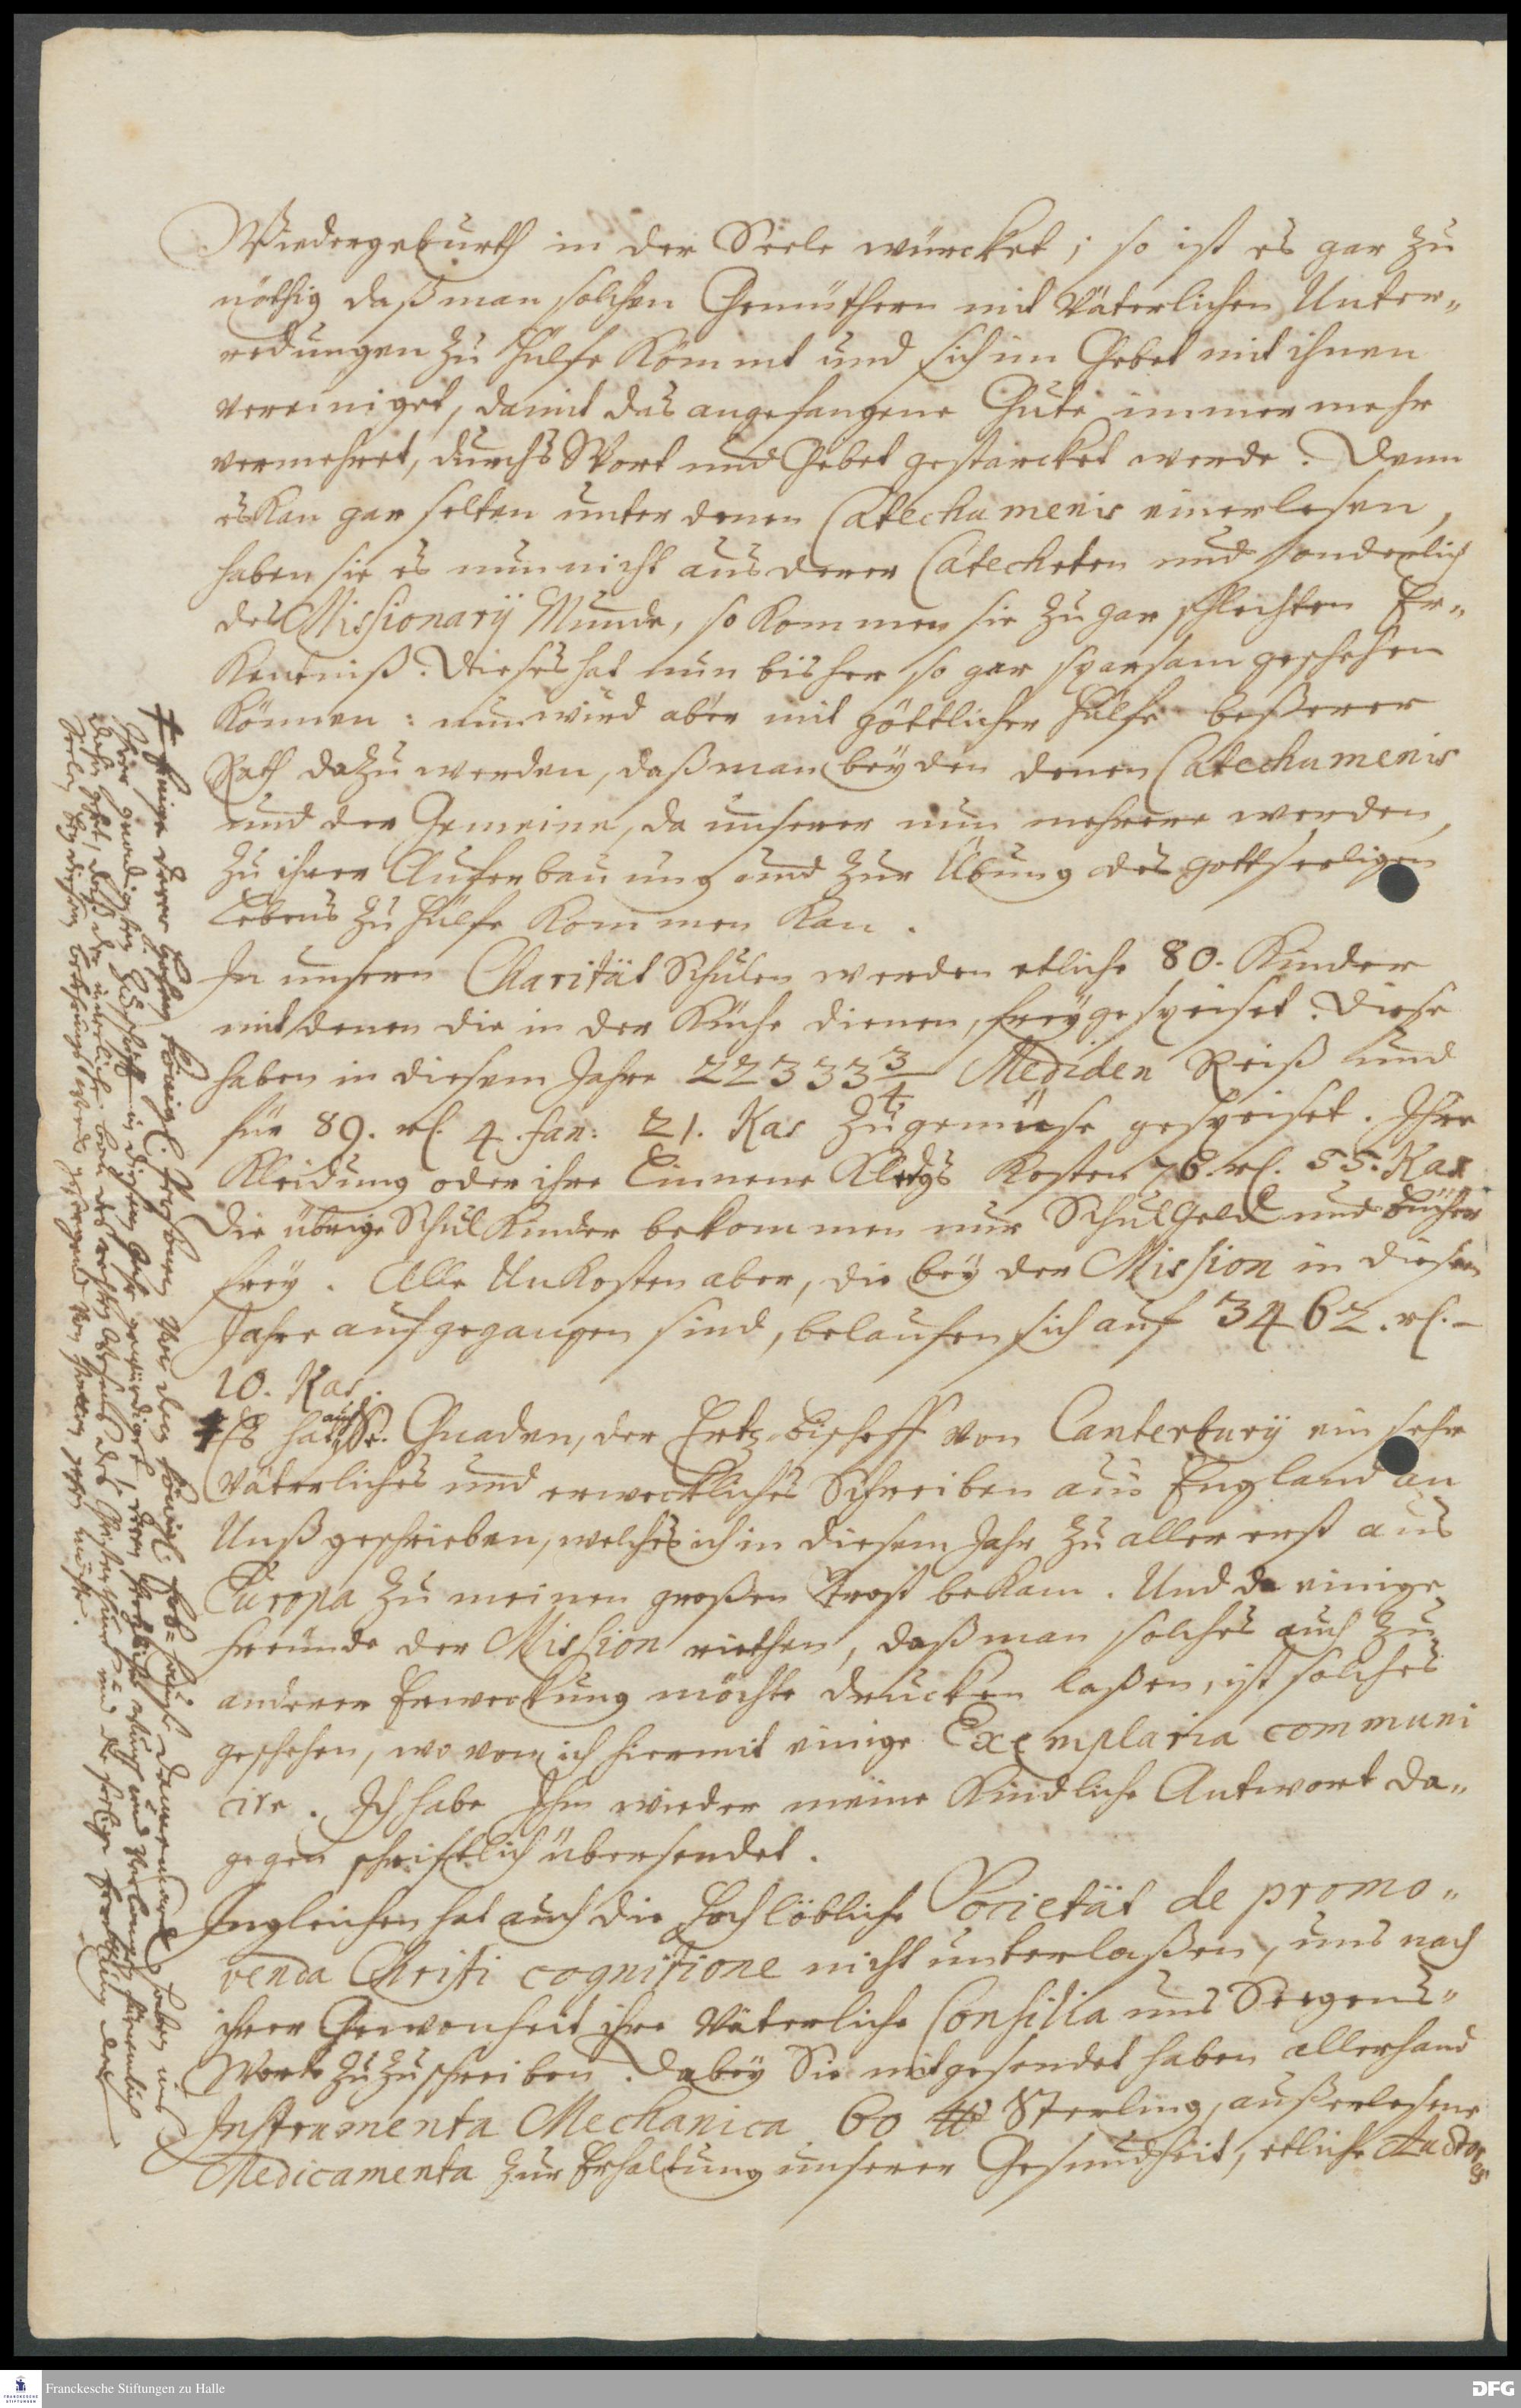 Wiedergeburth in der Seele würcket; so ist es gar zu
nöthig daß man solchen Gemüthern mit Väterlichen Unter„
redungen zu hülfe Kömmt und sich im Gebet mit ihnen
vereiniget, damit das angefangene Gute immer mehr
vermehret, durchs Wort und Gebet gestärcket werde. Denn
es Kan gar selten unter denen Catechumenis einer lesen,
haben sie es nun nicht aus derer Catecheten und sonderlich
des Missionarii Munde, so Kommen sie zu gar schlechten Er„
Kentniß. Dieses hat nun bisher so gar sparsam geschehen
Können: nun wird aber mit göttlicher hülfe beßerer
Rath dazu werden, daß man beyden denen Catechumenis
und der Gemeine, da unserer nun mehrere werden,
zu ihrer Auferbauung und zur Übung des gottseeligen
Lebens zu hülfe Kommen Kan.
In unsern Charität Schulen werden etliche 80. Kinder
mit denen die in der Küche dienen, frey gespeiset. Diese
haben in diesem Jahre 22333 3/4 Mediden Reiß und
für 89. rl. 4. fan: 21. Kas Zugemüse gespeiset. Ihre
Kleidung oder ihre Linnene Kleyds Kosten 76. rl. 55. Kas
Die übrige Schul Kinder bekommen nur Schul Geld und Bücher
frey. Alle Unkosten aber, die bey der Mission in diesem
Jahre aufgegangen sind, belaufen sich auf 3462. rl. –
10. Kas.
‡ Es hat auch Se. Gnaden, der Ertz-Bischoff von Canterbury ein sehr
Väterliches und erweckliches Schreiben aus England an
Unß geschrieben, welches ich in diesem Jahr zu aller erst aus
Europa zu meinen großen Trost bekam. Und da einige
freunde der Mission riethen, daß man solches auch zu
anderer Erweckung möchte drucken laßen, ist solches
geschehen, wovon ich hiermit einige Exemplaria communi
cire. Ich habe Ihm wieder meine Kindliche Antwort da„
gegen schriftlich übersendet.
Ingleichen hat auch die Hochlöbliche Societät de promo„
venda Christi cognitione nicht unterlaßen, uns nach
ihrer Gewonheit ihre Väterliche Consilia uns Seegens„
Worte zuzuschreiben. Dabey Sie mitgesendet haben allerhand
Instrumenta Mechanica 60 ℔ Sterling, außerlesene
Medicamenta zur Erhaltung unserer Gesundheit, etliche Auctores
‡ Einige derer hohen Königl. Persohnen von dem Königl. Erb-hause Dannemarck haben uns
Ihrer gnädigsten Zuschrifft in diesem Jahr gewürdiget, deren hertzlicher Wunsch und Verlangen fürnemlich
dahin gehet, daß der innerliche Bau des rechten Wesens des Christenthums und die seelige
Seelen bey diesem Bekehrungs Werck
Franckesche Stiftungen zu Halle
FRANCKESCHE STIFTUNGEN
DFG